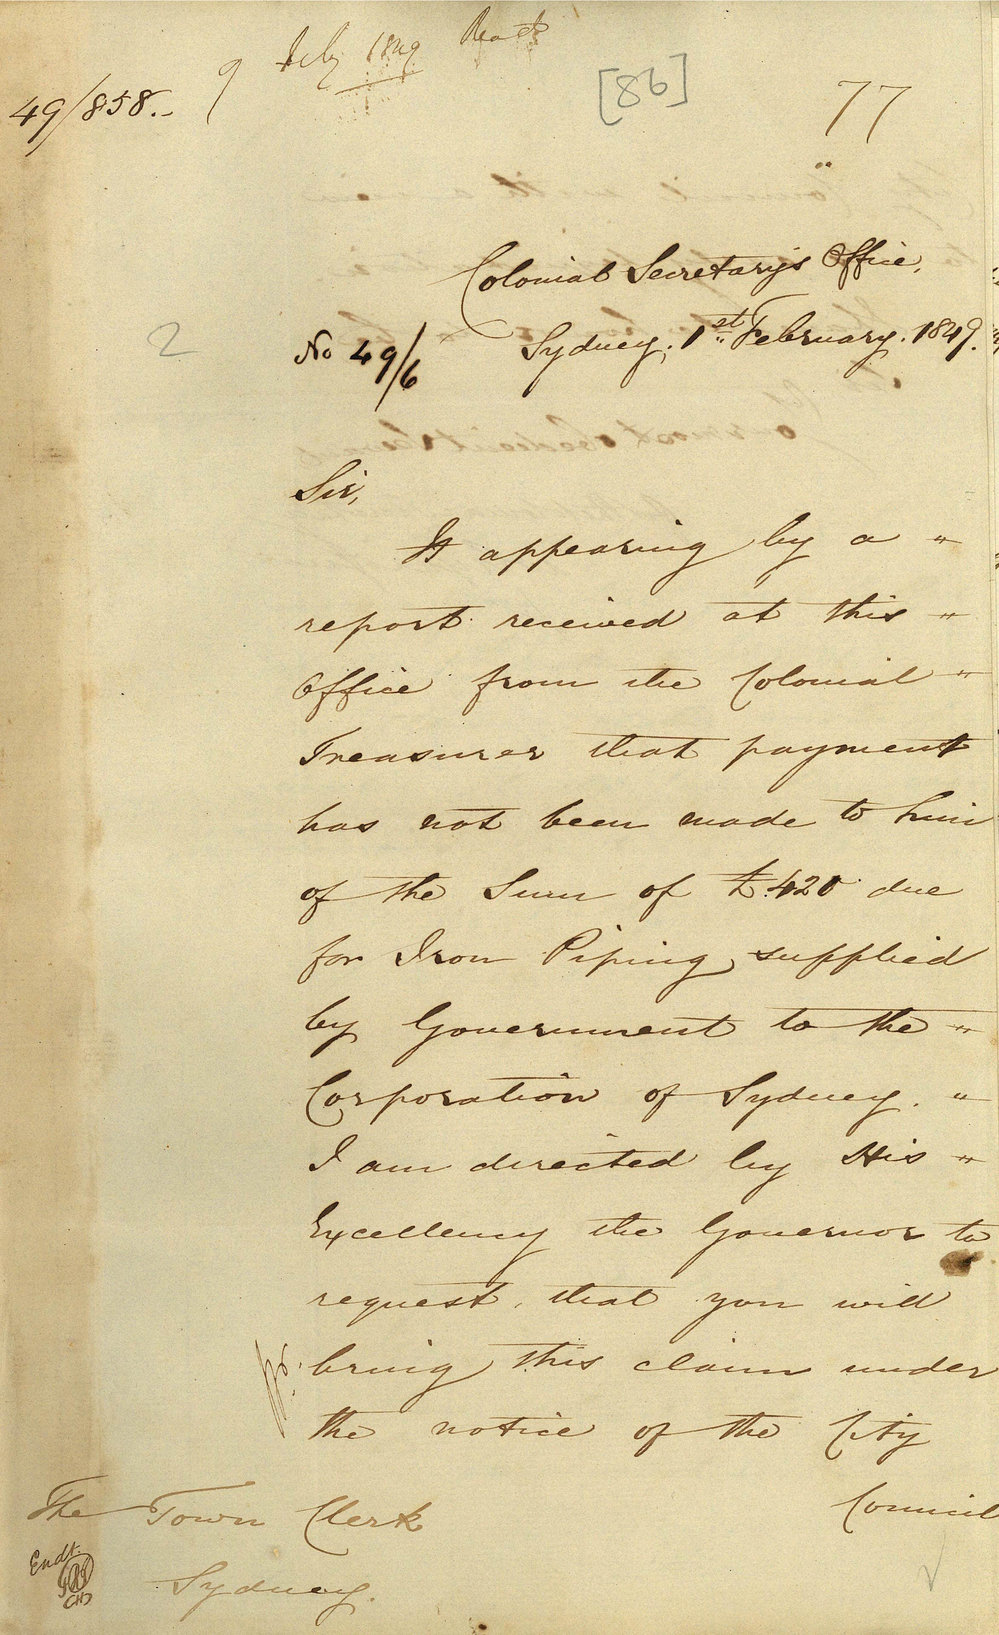 9 Feby 1849 Read
49/858.-
[86]
77
Colonial Secretary's Office,
Sydney, 1st February. 1849.
2
No 49/6
Sir,
It appearing by a "
report received at this "
Office from the Colonial "
Treasurer that payment
has not been made to him
of the Sum of £420 due
for Iron Piping, supplied
by Government to the "
Corporation of Sydney. "
I am directed by His "
Excellency the Governor to
request, that you will
bring this claim under
the notice of the City
Council
The Town Clerk
Sydney.
Endt.